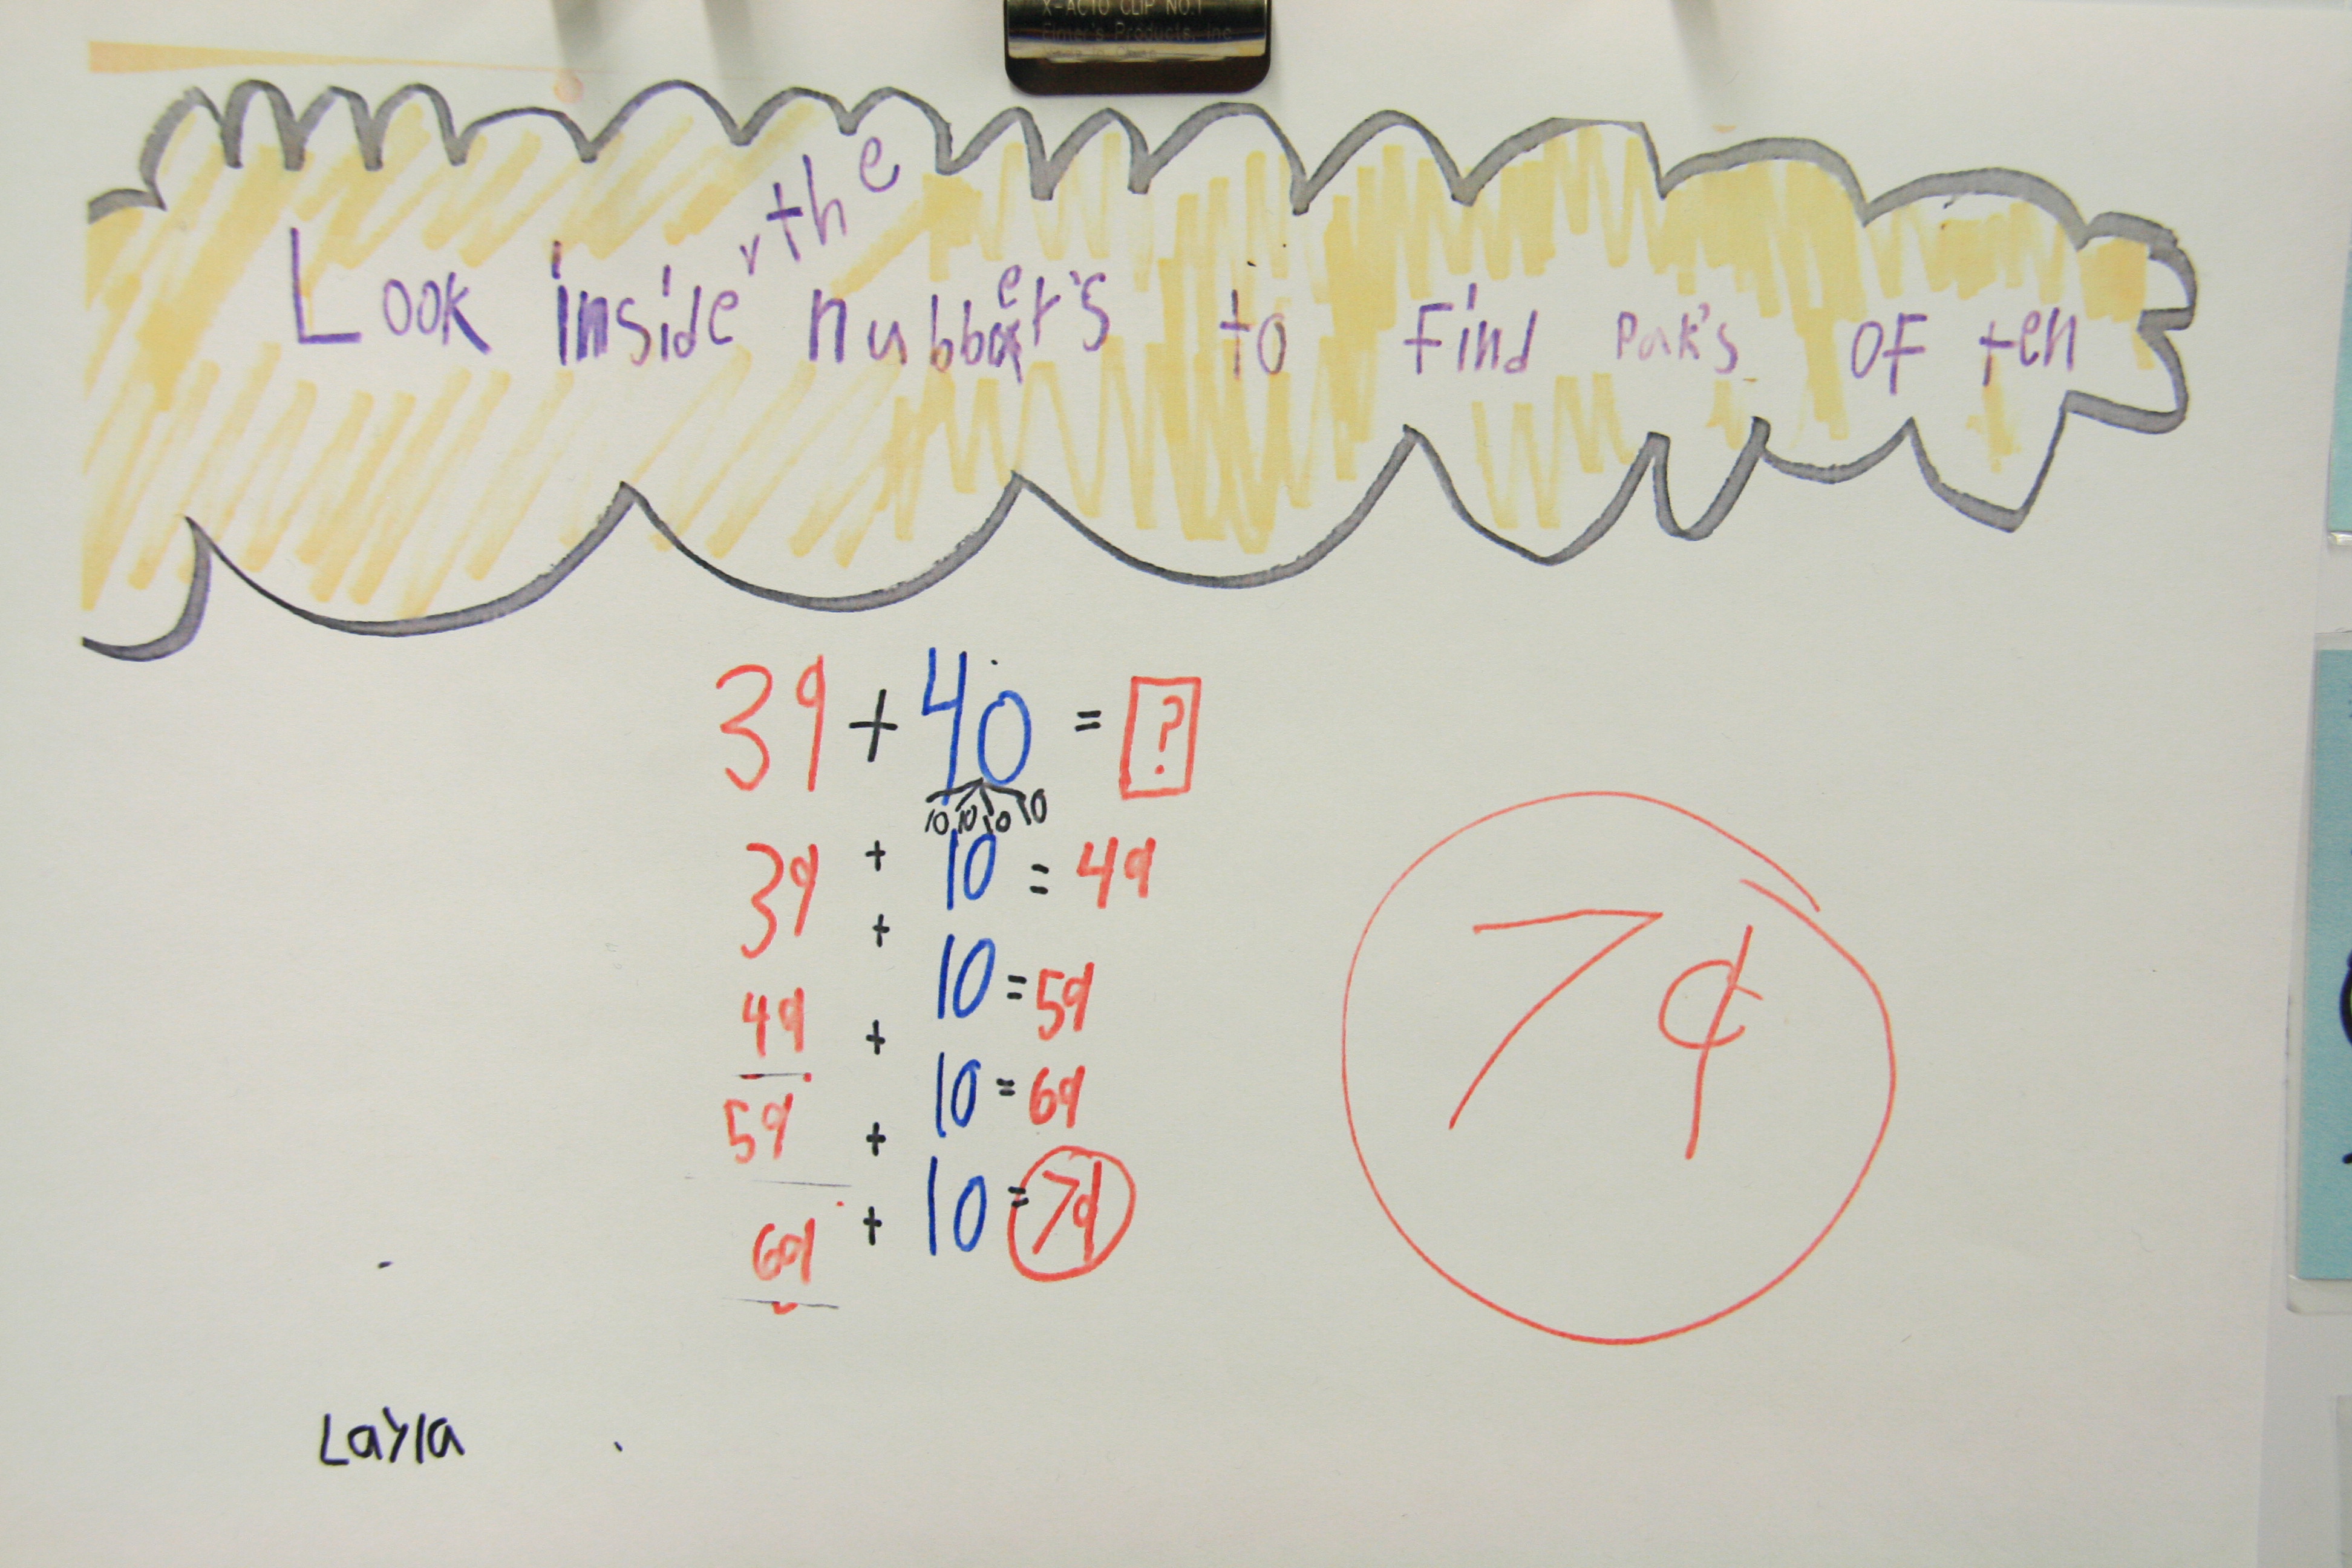 X-ACTO CLIP NO.1
Elmer's Products, Inc
Look inside the nubber's to Find Pak's OF ten
39 + 40 = ?
10 10 10 10
39 + 10 = 49
+
49 10 = 59
+
59 10 = 69
+
69 + 10 = 79
79
Layla